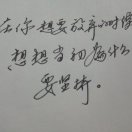 在你想要放弃的时候
想想当初为什么
要坚持。